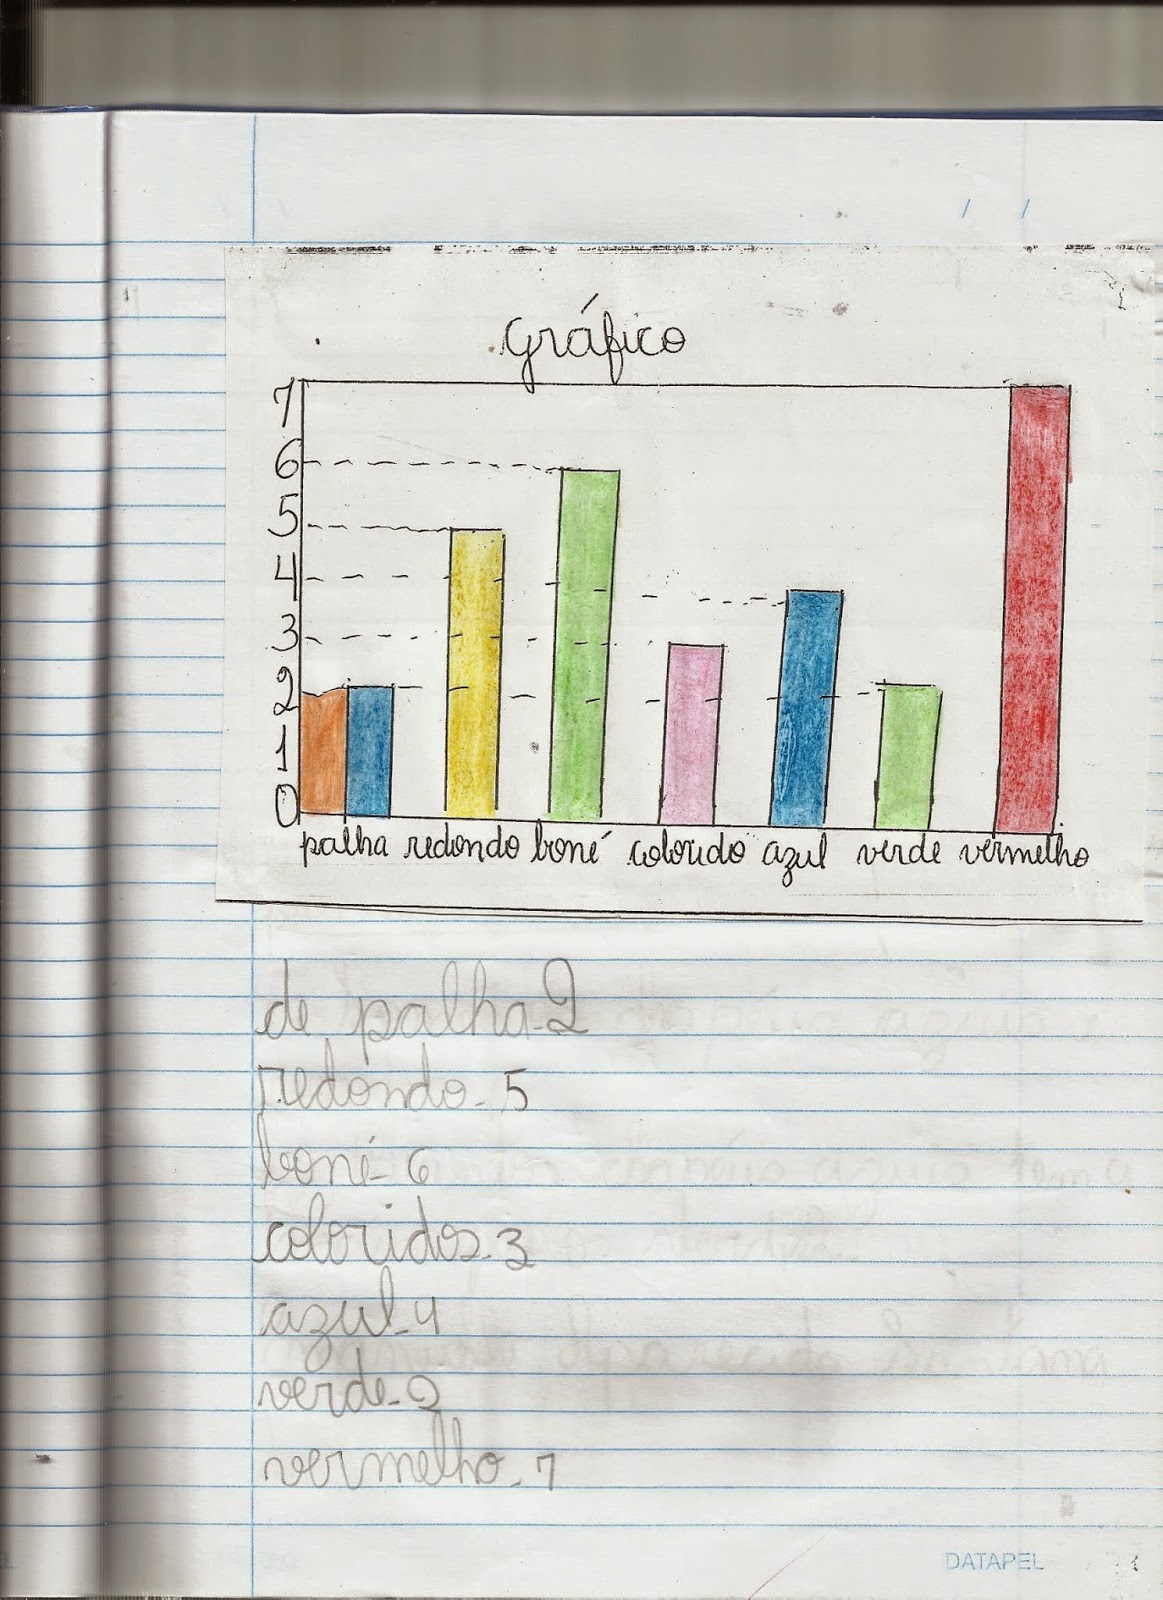 gráfico
7
6
5
4
3
2
1
0
palha redondo boné colorido azul verde vermelho
de palha-2
redondo-5
boné-6
coloridos-3
azul-4
verde-2
vermelho-7
DATAPEL